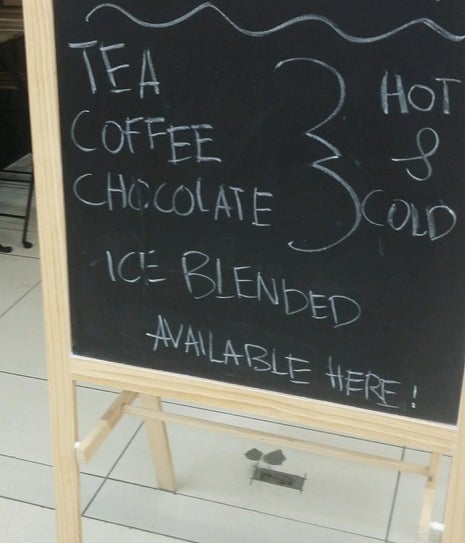 TEA
COFFEE
CHOCOLATE
HOT
&
COLD
ICE BLENDED
AVAILABLE HERE!